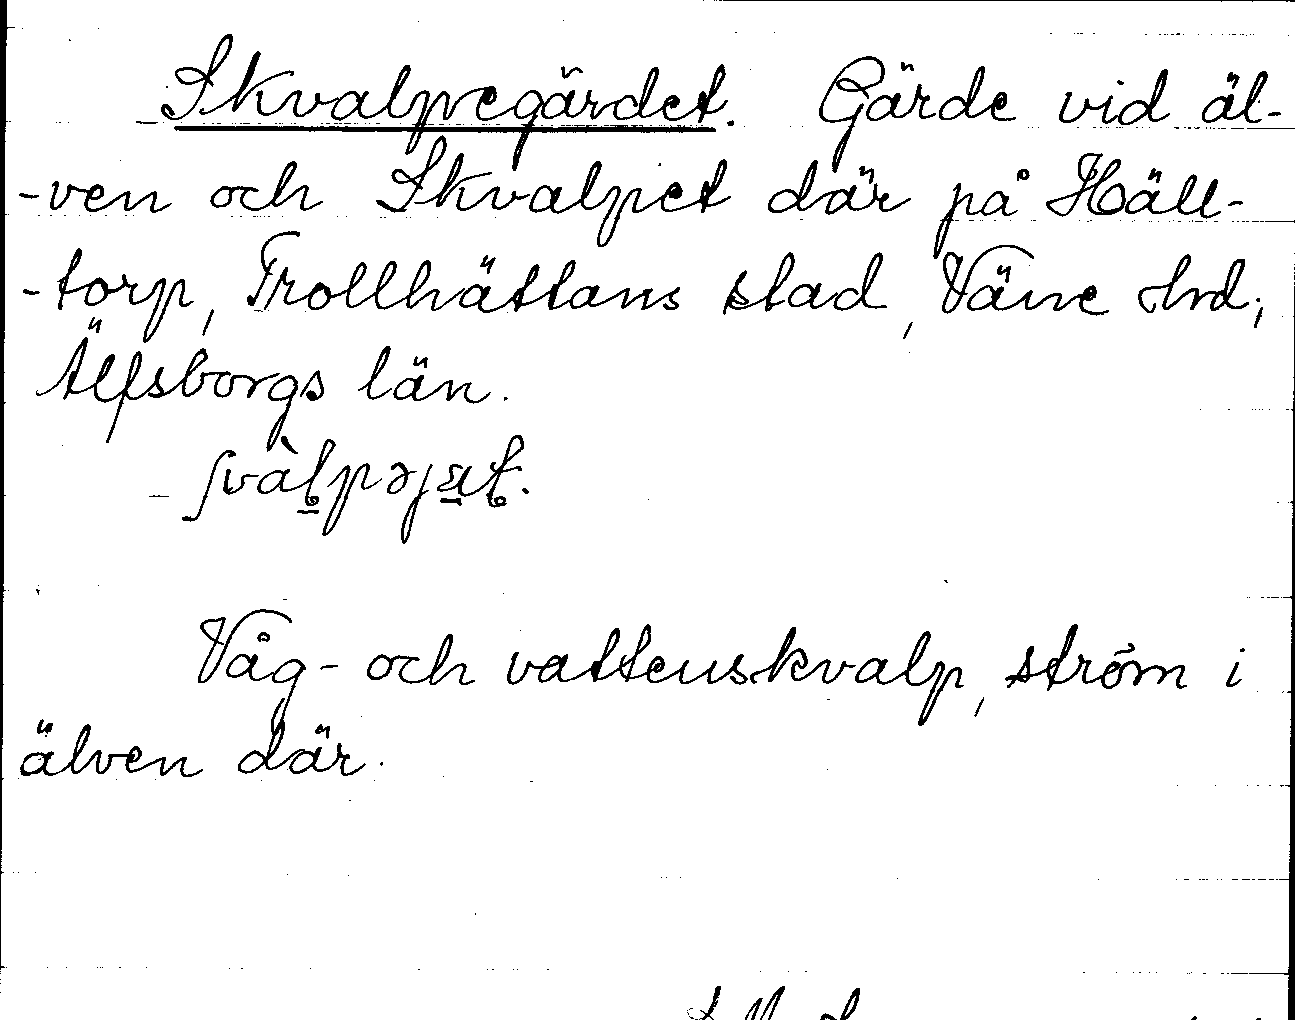 Skvalpegärdet. Gärde vid äl-
-ven och Skvalpet där på Häll-
-torp, Trollhättans stad, Väne hrd,
Älfsborgs län.
Våg- och vattenskvalp, ström i
älven där.